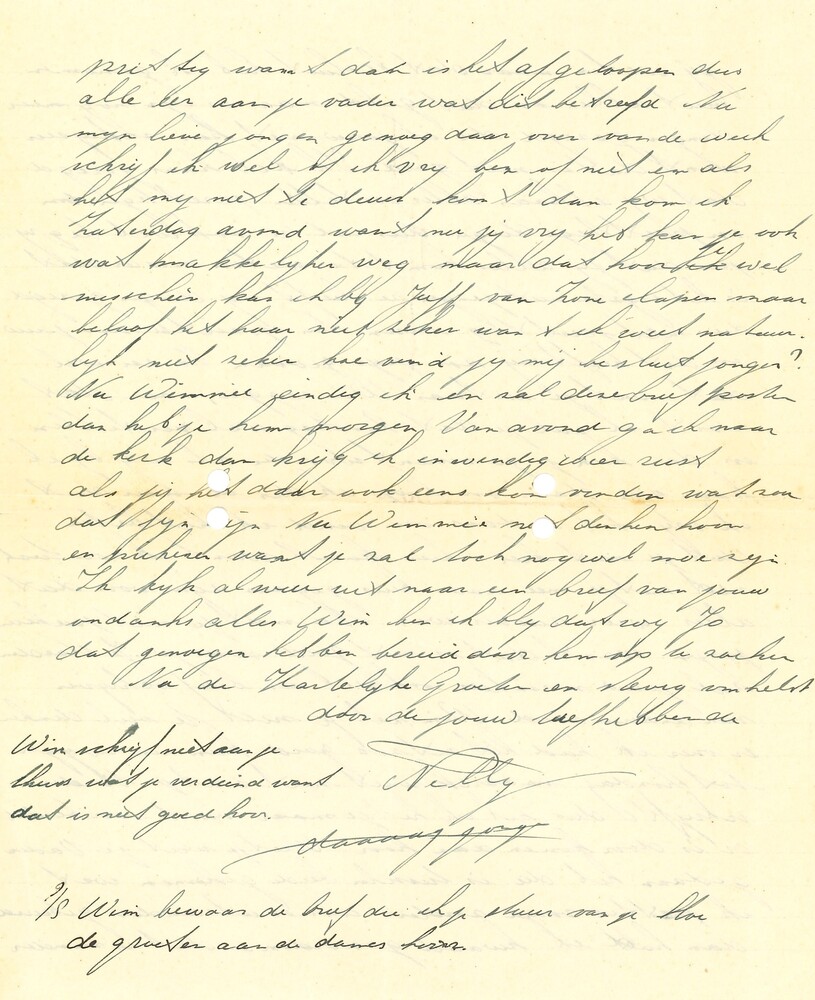 prettig want dan is het afgeloopen dus
alle eer aan je vader wat dit betrefd Nu
mijn lieve jongen genoeg daar over van de week
schrijf ik wel of ik vrij ben of niet en als
het mij niet te duur komt dan kom ik
Zaterdag avond want nu jij vrij het kan je ook
wat makkelijker weg maar dat hoor ik wel
misschien kan ik bij Juff van slapen maar
beloof het haar niet zeker want ik weet natuur-
lijk niet zeker hoe vind jij mij besluit jongen?
Nu Wimmie eindig ik en zal deze brief posten
dan heb je hem morgen Van avond ga ik naar
de kerk dan krijg ik inwendig weer rust
als jij het daar ook eens kon vinden wat zou
dat fijn zijn Nu Wimmie niet denken hoor
en want je zal toch nog wel moe zijn.
Ik kijk alweer uit naar een brief van jouw
ondanks alles Wim ben ik blij dat wij Jo
dat genoegen hebben bereid door hem op te zoeken
Na de Hartelijke Groeten en stevig omhelst
door de jouw liefhebbende
Wim schrijf niet aan je
thuis wat je verdiend want
dat is niet goed hoor.
Nelly
daaaag jonge
P/S Wim bewaar de brief die ik je stuur van je
de groeten aan de dames hoor.